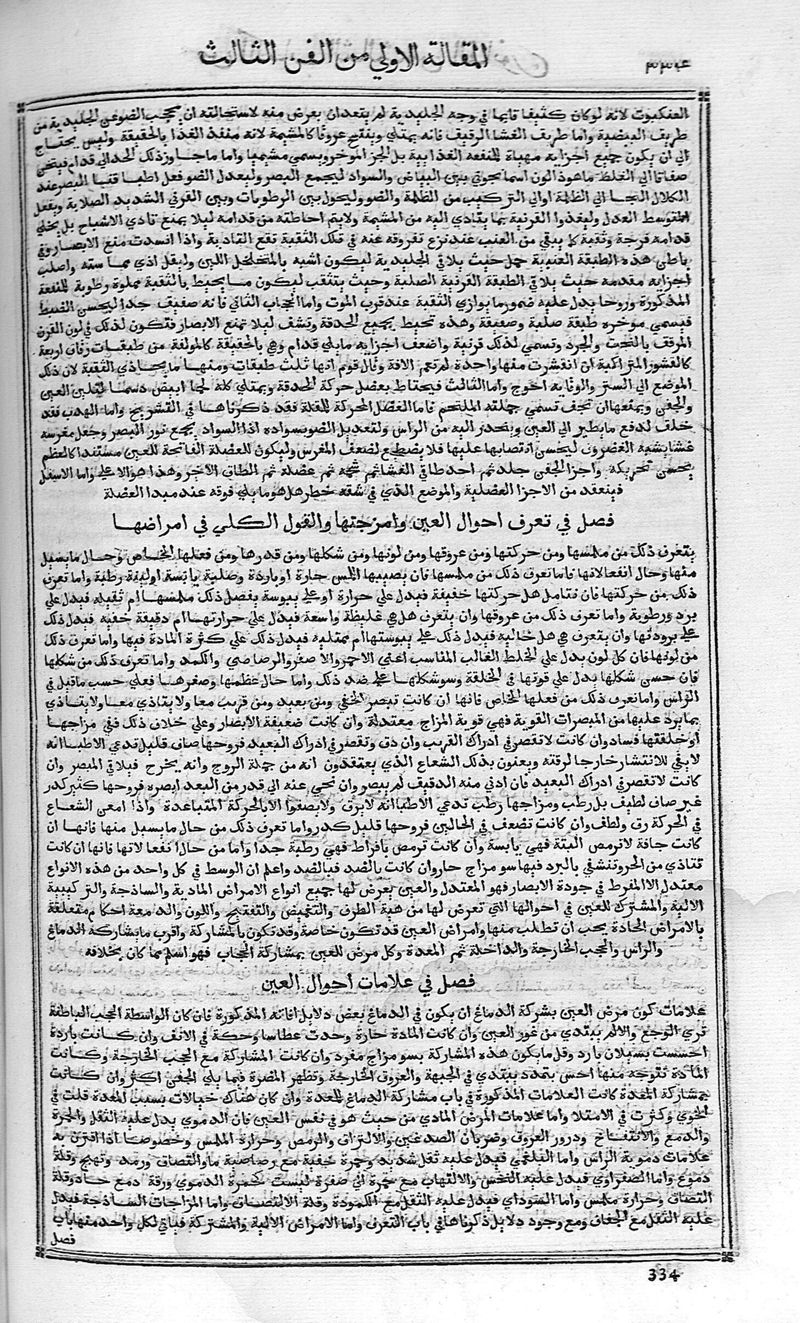 المقالة الاولي من الفن الثالث
٣٣٤
العنكبوت لانه لو كان كثيفا قايما في وجه الجليدية لم يبعدان يعرض منه لاستحالته ان يحجب الضو عن الجليدية من
طريف البيضية واما طريف الغشا الرقيف فانه يمتلي وينتسج عروقا كالمشيمة لانه منفذ الغذا بالحقيقة وليس يحتاج
الي ان يكون جميع اجزايه مهياة للمنفعة الغذايية بل الجز الموخر ويسمي مشيميا واما ما جاوز ذلك الحد الي قدام فيثخن
صفاقا الي الغلظ ما هو ذو لون اسمانجوني بين البياض والسواد ليجمع البصر وليعدل الضو فعل اطباقنا البصر عند
الكلال التجا الي الظلمة او الي التركيب من الظلمة والضو وليحول بين الرطوبات وبين القرني الشديد الصلابة ويفعل
المتوسط العدل وليغذوا القرنية بما يتادي اليه من المشيمة ولا يتم احاطته من قدامه ليلا يمنع تادي الاشباح بل يخلي
قدامه فرجة وثقبة كما يبقي من العنب عند نزع تفروقه عنه في تلك الثقبة تقع التادية واذا انسدت منع الابصار وفي
باطن هذه الطبقة العنبية خمل حيث يلاقي الجليدية ليكون اشبه بالمتخلخل اللين وليقل اذي مماسته واصلب
اجزايه مقدمه حيث يلاقي الطبقة القرنية الصلبة وحيث يتثقب ليكون ما يحيط بالثقبة مملوة رطوبة للمنفعة
المذكورة وروحا يدل عليه ضمور ما يوازي الثقبة عند قرب الموت واما الحجاب الثاني فانه صفيق جدا ليحسن الضبط
فيسمي موخره طبقة صلبة وصفيقة وهذه تحيط بجميع الحدقة وتشف ليلا تمنع الابصار فتكون لذلك في لون القرن
المرقف بالنحت والجرد وتسمي لذلك قرنية واضعف اجزايه ما يلي قدام وهي بالحقيقة كالمولفة من طبقات رقاق اربعة
كالقشور المتراكبة ان انقشرت منها واحدة لم تعم الافة وقال قوم انها ثلث طبقات ومنها ما يحاذي الثقبة لان ذلك
الموضع الي الستر والوقاية احوج واما الثالث فيختلط بعضل حركة الحدقة ويمتلي كله لحما ابيض دسما ليلين العين
والجفن ويمنعها ان تجف تسمي جملته الملتحم فاما العضل المحركة للمقلة فقد ذكرناها في التشريح واما الهدب فقد
خلف لدفع ما يطير الي العين وينحدر اليه من الراس ولتعديل الضو بسواده اذ السواد يجمع نور البصر وجعل مغرسه
غشا يشبه الغضروف ليحسن انتصابها عليها فلا يضطجع لضعف المغرس وليكون للعضلة الفاتحة للعين مستندا كالعظم
يحسن تحريكه واجزا الجفن جلد ثم احد طاقي الغشا ثم شحمه ثم عضلة ثم الطاق الاخر وهذا هو الاعلي واما الاسفل
فينعقد من الاجزا العضلية والموضع الذي في شقه خطر هل هو ما يلي فوقه عند مبدا العضلة
فصل في تعرف احوال العين وامزجتها والقول الكلي في امراضها
يتعرف ذلك من ملمسها ومن حركتها ومن عروقها ومن لونها ومن شكلها ومن قدرها ومن فعلها الخاص وحال ما يسيل
منها وحال انفعالاتها فاما تعرف ذلك من ملمسها فان يصيبها اللمس حارة او باردة وصلبة يابسة اولينة رطبة واما تعرف
ذلك من حركتها فان تتامل هل حركتها خفيفة فيدل علي حرارة او علي يبوسة يفصل ذلك ملمسها ام ثقيلة فيدل علي
برد ورطوبة واما تعرف ذلك من عروقها وان يتعرف هل هي غليظة واسعة فيدل علي حرارتها ام دقيقة خفية فيدل ذلك
علي برودتها وان يتعرف هي هل خالية فيدل ذلك علي يبوستها ام ممتليه فيدل ذلك علي كثرة المادة فيها واما تعرف ذلك
من لونها فان كل لون يدل علي الخلط الغالب المناسب اعني الاحمر والاصفر والرصاصي والكمد واما تعرف ذلك من شكلها
فان حسن شكلها يدل علي قوتها في الخلقة وسو شكلها علي ضد ذلك واما حال عظمها وصغرها فعلي حسب ما قيل في
الراس واما تعرف ذلك من فعلها الخاص فانها ان كانت تبصر الخفي ومن بعيد ومن قريب معا ولا يتاذي معا ولا يتاذي
بما يرد عليها من المبصرات القوية فهي قوية المزاج معتدلة وان كانت ضعيفة الابصار وعلي خلاف ذلك ففي مزاجها
او خلقتها فساد وان كانت لا تقصر في ادراك القريب وان دق وتقصر في ادراك البعيد فروحها صاف قليل تدعي الاطبا انه
لا يفي للانتشار خارجا لرقته ويعنون بذلك الشعاع الذي يعتقدون انه من جملة الروح وانه يخرج فيلاقي المبصر وان
كانت لا تقصر في ادراك البعيد فان ادني منه الدقيق لم يبصر وان نحي عنه الي قدر من البعد ابصره فروحها كثير كدر
غير صاف لطيف بل رطب ومزاجها رطب تدعي الاطبا انه لا يرق ولا يصفوا الا بالحركة المتباعدة واذا امعن الشعاع
في الحركة رق ولطف وان كانت تضعف في الحالين فروحها قليل كدر واما تعرف ذلك من حال ما يسيل منها فانها ان
كانت جافة لا ترمص البتة فهي يابسة وان كانت ترمص بافراط فهي رطبة جدا واما من حال انفعالاتها فانها ان كانت
تتاذي من الحر وتتشفي بالبرد فبها سو مزاج حار وان كانت بالضد فبالضد واعلم ان الوسط في كل واحد من هذه الانواع
معتدل الا المفرط في جودة الابصار فهو المعتدل والعين يعرض لها جميع انواع الامراض المادية والساذجة والتركيبية
الالية والمشتركة للعين في احوالها التي تعرض لها من هية الطرف والتغميض والتفتيح واللون والدمعة احكام متعلقة
بالامراض الحادة يجب ان تطلب منها وامراض العين قد تكون خاصة وقد تكون بالمشاركة واقرب ما يشاركه الدماغ
والراس والحجب الخارجة والداخلة ثم المعدة وكل مرض للعين بمشاركة الحجاب فهو اسلم مما كان بخلافه
فصل في علامات احوال العين
علامات كون مرض العين بشركة الدماغ ان يكون في الدماغ بعض دلايل افاته المذكورة فان كان الواسطة الحجب الباطنة
تري الوجع والالم يبتدي من غور العين وان كانت المادة حارة وجدت عطاسا وحكة في الانف وان كانت باردة
احسست بسيلان بارد وقل ما يكون هذه المشاركة بسو مزاج مفرد وان كانت المشاركة مع الحجب الخارجة وكانت
المادة تتوجه منها احس بتمدد يبتدي في الجبهة والعروق الخارجة وتظهر المضرة فيما يلي الجفن اكثر وان كانت
بمشاركة المعدة كانت العلامات المذكورة في باب مشاركة الدماغ للمعدة وان كان هناك خيالات بسبب المعدة قلت في
الخوي وكثرت في الامتلا واما علامات المرض المادي من حيث هو في نفس العين فان الدموي يدل عليه الثقل والحمرة
والدمع والانتفاخ ودرور العروق وضربان الصدغين والالتزاق والرمص وحرارة الملمس وخصوصا اذا اقترن به
علامات دموية الراس واما البلغمي فيدل عليه ثقل شديد وحمرة خفية مع رصاصية ما والتصاق ورمد وتهيج وقلة
دموع واما الصفراوي فيدل عليه النخس والالتهاب مع حمرة الي صفرة ليست كحمرة الدموي ورقة دمع حاد وقلة
التصاق وحرارة ملمس واما السوداي فيدل عليه الثقل مع الكمودة وقلة الالتصاق واما المزاجات الساذجة فيدل
عليه الثقل مع الجفاف ومع وجود دلايل ذكرناها في باب التعرف واما الامراض الالية والمشتركة فياتي لكل واحد منها باب
فصل
334